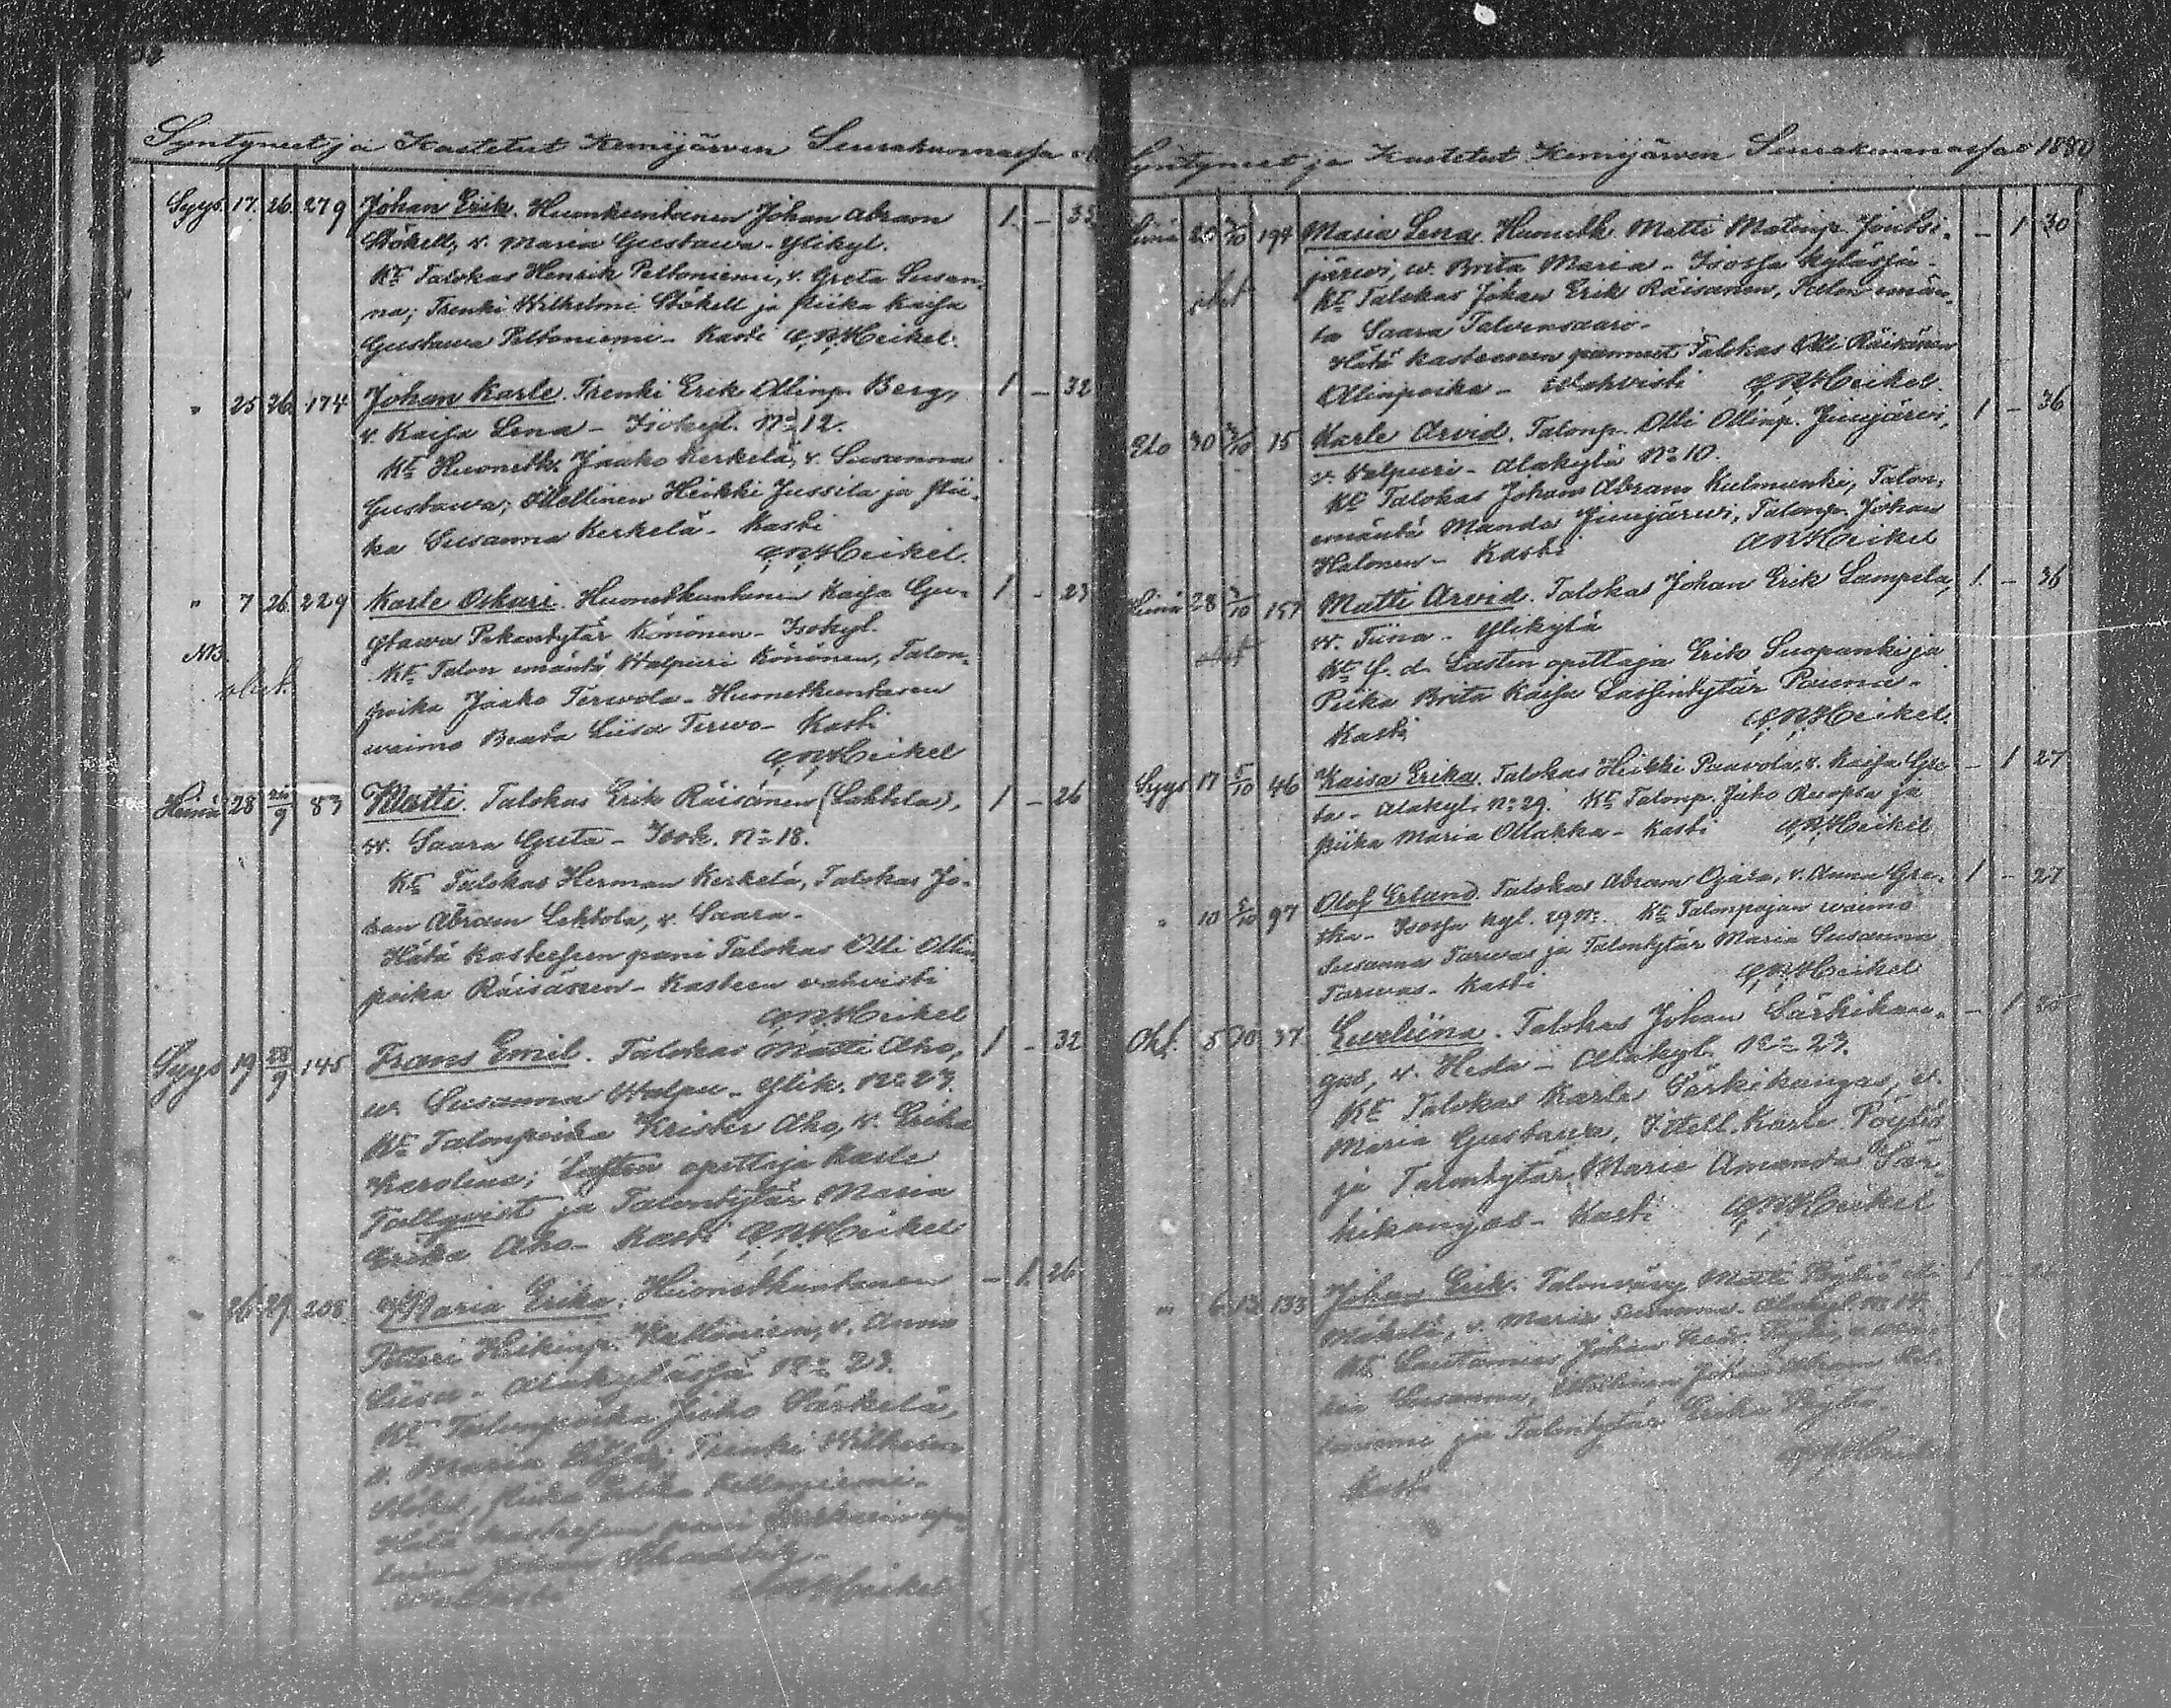 Syntyneet ja Kastetut Kemijärven Seurakunnassa
Syys. 17. 26. 279 Johan Erik. Huonekuntanen Johan Abram 1. –
Stökell, v. Maria Gustawa - Ylikyl.
Kt. Talokas Henrik Peltoniemi, v. Greta Susan-
na; Trenki Wilhelmi Stökell ja piika Kaisa
Gustawa Peltoniemi - Kasti A. N. Heikel.
" 25 26 174 Johan Karle. Trenki Erik Ollinp. Berg, 1 – 32
v. Kaisa Lena - Isokyl. No 12.
Kt. Huonethk. Jaako Kerkelä, v. Susanna
Gustawa; Itellinen Heikki Jussila ja pii-
ka Susanna Kerkelä - Kasti
A. N. Heikel.
" 7 26 229 Karle Oskari. Huonetkuntanen Kaisa Gu- 1 – 23
stawa Pekantytär Könönen - Isokyl.
NB. Kt. Talon emäntä Walpuri Könönen, Talon-
poika Jaako Terwola - Huonetkuntasen
waimo Beata Liisa Terwo - Kasti
A. N. Heikel
Heinä 28 26/9 83 Matti. Talokas Erik Räisänen (Lehtola), 1 – 26
w. Saara Greta - Isok. No 18.
Kt. Talokas Herman Kerkelä, Talokas Jo-
han Abram Lehtola, v. Saara -
Hätä kasteessen pani Talokas Olli Ollin
poika Räisänen - Kasteen wahvisti
A. N. Heikel
Syys 19 28/9 145 Frans Emil. Talokas Matti Aho, 1 – 32
w. Susanna Walpu - Ylik. No 27.
Kt. Talonpoika Krister Aho, v. Erika
Karolina; Lasten opettaja Karle
Tallqvist ja Talontytär Maria
Erika Aho - Kasti A. N. Heikel
" 26. 29. 208. Maria Erika. Huonetkuntanen – 1 26
Petteri Heikinp. Kelloniemi, v. Anna
Liisa - Alakylässä No 23.
Kt. Talonpoika Juho Särkelä,
v. Maria; Trenki Wilhelm
Stökel, piika Kelloniemi -
Hätä kasteessen pani
Johan
A. N. Heikel
Syntyneet ja Kastetut Kemijärven Seurakunnassa 1880
194 Maria Lena. Huoneth. Matti Matinp. Jontsi- – 1 30
järwi, w. Brita Maria - Isossa kylässä -
Kt. Talokas Johan Erik Räisänen, Talon emän-
tä Saara Talvensaari -
Hätä kasteeseen pannut Talokas Olli Räisänen
Ollinpoika - Wahvisti A. N. Heikel.
Elo 30 3/10 15 Karle Arvid. Talonp. Olli Ollinp. Juujärwi, 1 – 36
v. Valpuri - Alakylä No 10.
Kt. Talokas Johan Abram Kulmunki, Talon-
emäntä Manda Juujärwi, Talonp. Johan
Halonen - Kasti A. N. Heikel
Heinä 28 3/10 157 Matti Arvid. Talokas Johan Erik Lampela, 1. – 36
w. Tiina - Ylikylä
Kt. f. d. Lasten opettaja Erik Suopanki ja
Piika Brita Kaisa Lassintytär Pauna -
Kasti A. N. Heikel.
Syys 17 5/10 46 Kaisa Erika. Talokas Heikki Paavola, v. Kaisa Gre- – 1 27
ta - Alakyl. No 29. Kt. Talonp. Juho Ruopsa ja
piika Maria Ollakka - Kasti A. N. Heikel
" 10 5/10 97 Olof Erland. Talokas Abram Ojala, v. Anna Gre- 1 – 27
tha - Isossa kyl. 29 No. Kt. Talonpojan waimo
Susanna Tarwas ja Talontytär Maria Susanna
Tarwas - Kasti A. N. Heikel
Okt. 5 10 37 Eveliina. Talokas Johan Särkikan- – 1
gas, v. Heda - Alakyl. No 23.
Kt. Talokas Karle Särkikangas, v.
Maria Gustawa, Itell. Karle Pöyliö
ja Talontytär Marie Amanda Sär-
kikangas - Kasti A. N. Heikel
" 6. 13. 133 Johan Erik. Talonvävy Matti Pöyliö 1
Mäkelä, v. Maria Susanna - Alakyl. No 14.
Kt. Lautamies Johan Pöyliö,
Susanna, Itellinen Johan Abram Kel-
loniemi ja Talontytär Erika Pöyliö -
Kasti